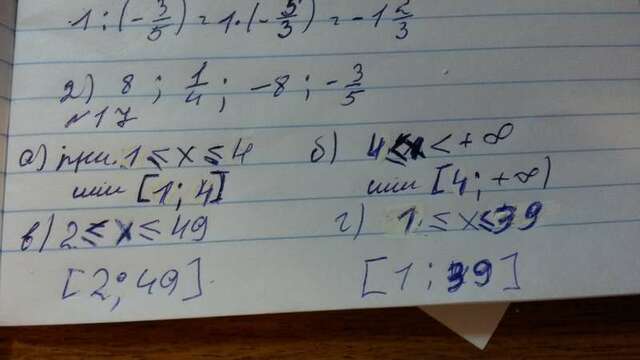 1 : (- 3/5) = 1 · (- 5/3) = -1 2/3
2) 8 ; 1/4 ; -8 ; - 3/5
№17
а) при 1 ≤ x ≤ 4
или [1; 4]
б) 4 ≤ x < +∞
или [4; +∞)
в) 2 ≤ x ≤ 49
[2; 49]
г) 1 ≤ x ≤ 39
[1; 39]